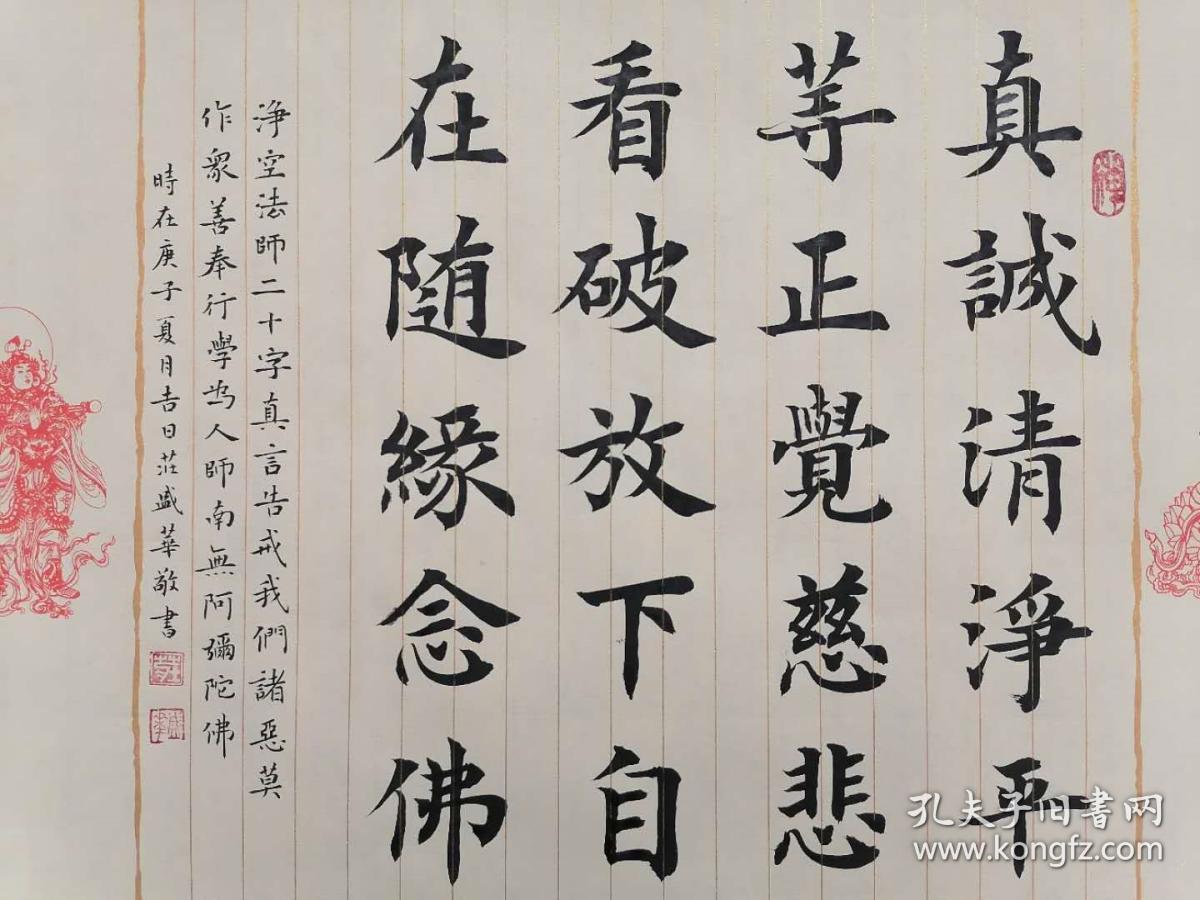 真誠清淨平
等正覺慈悲
看破放下自
在随緣念佛
淨空法師二十字真言告戒我們諸惡莫
作衆善奉行學為人師南無阿彌陀佛
時在庚子夏月吉日莊盛華敬書
孔夫子旧书网
www.kongfz.com